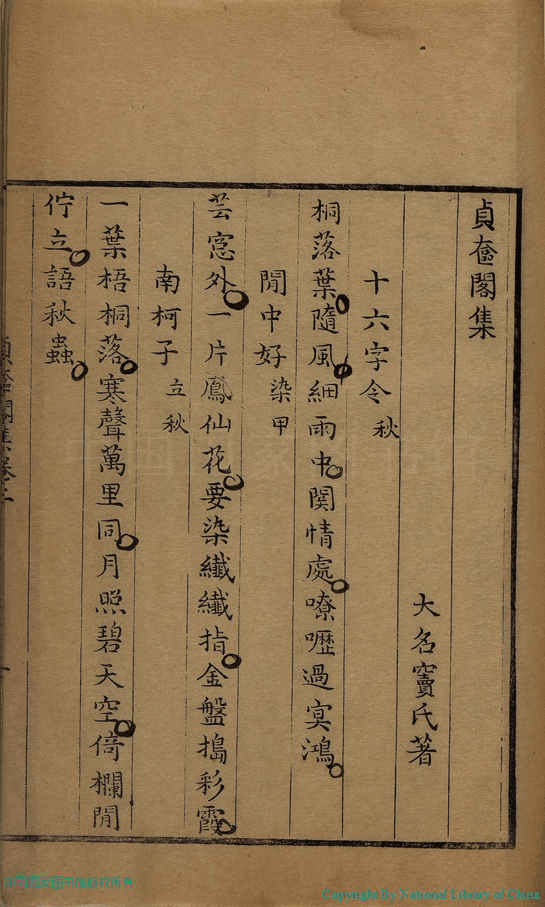 貞奩閣集
大名竇氏著
十六字令 秋
桐落葉隨風細雨中関情處嘹嚦過寞鴻
閒中好 染甲
芸窓外一片鳳仙花要染纖纖指金盤搗彩霞
南柯子 立秋
一葉梧桐落寒聲萬里同月照碧天空倚欄閒
佇立語秋蟲
Copyright By National Library of China